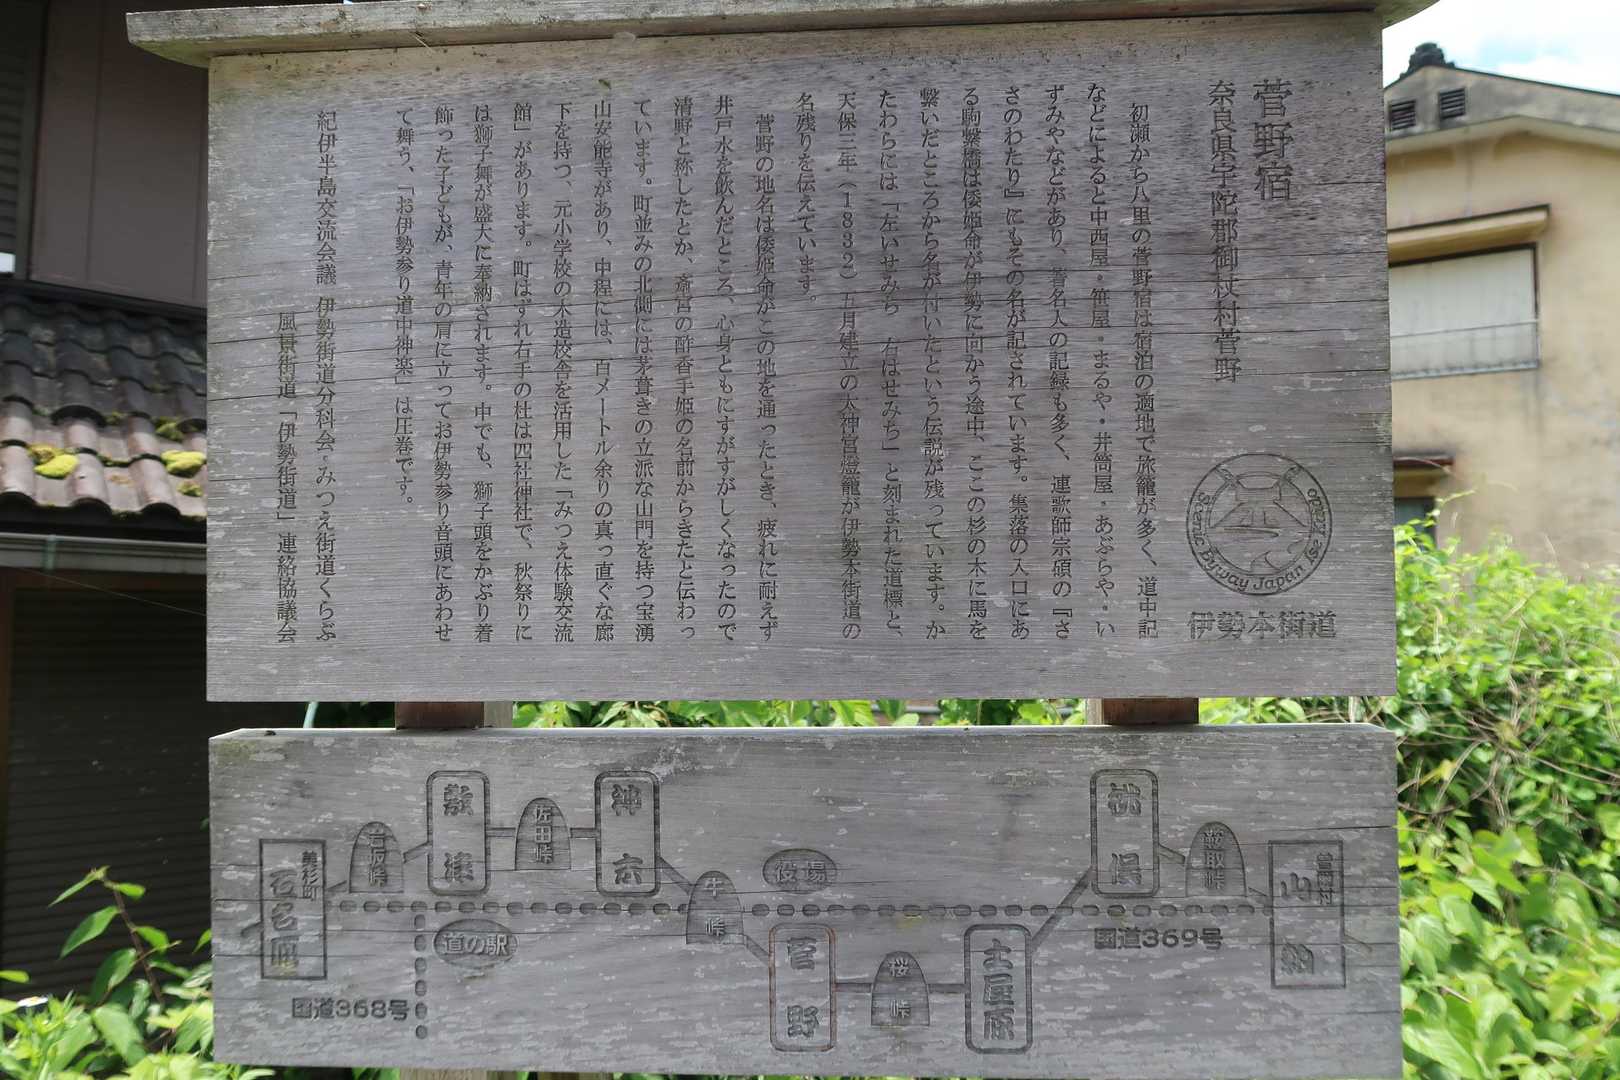 菅野宿
奈良県宇陀郡御杖村菅野
初瀬から八里の菅野宿は宿泊の適地で旅籠が多く、道中記
などによると中西屋・笹屋・まるや・井筒屋・あぶらや・い
ずみやなどがあり、著名人の記録も多く、連歌師宗碩の『さ
さのわたり』にもその名が記されています。集落の入口にあ
る駒繋橋は倭姫命が伊勢に向かう途中、ここの杉の木に馬を
繋いだところから名が付いたという伝説が残っています。か
たわらには「左いせみち 右はせみち」と刻まれた道標と、
天保三年（1832）五月建立の太神宮燈籠が伊勢本街道の
名残りを伝えています。
菅野の地名は倭姫命がこの地を通ったとき、疲れに耐えず
井戸水を飲んだところ、心身ともにすがすがしくなったので
清野と称したとか、斎宮の酢香手姫の名前からきたと伝わっ
ています。町並みの北側には茅葺きの立派な山門を持つ宝湧
山安能寺があり、中程には、百メートル余りの真っ直ぐな廊
下を持つ、元小学校の木造校舎を活用した「みつえ体験交流
館」があります。町はずれ右手の杜は四社神社で、秋祭りに
は獅子舞が盛大に奉納されます。中でも、獅子頭をかぶり着
飾った子どもが、青年の肩に立ってお伊勢参り音頭にあわせ
て舞う、「お伊勢参り道中神楽」は圧巻です。
紀伊半島交流会議 伊勢街道分科会・みつえ街道くらぶ
風景街道「伊勢街道」連絡協議会
Scenic Byway Japan Ise Kaido
伊勢本街道
美杉町
石名原
岩坂峠
敷津
佐田峠
神末
牛峠
役場
菅野
桜峠
土屋原
桃俣
鞍取峠
曽爾村
山粕
道の駅
国道368号
国道369号